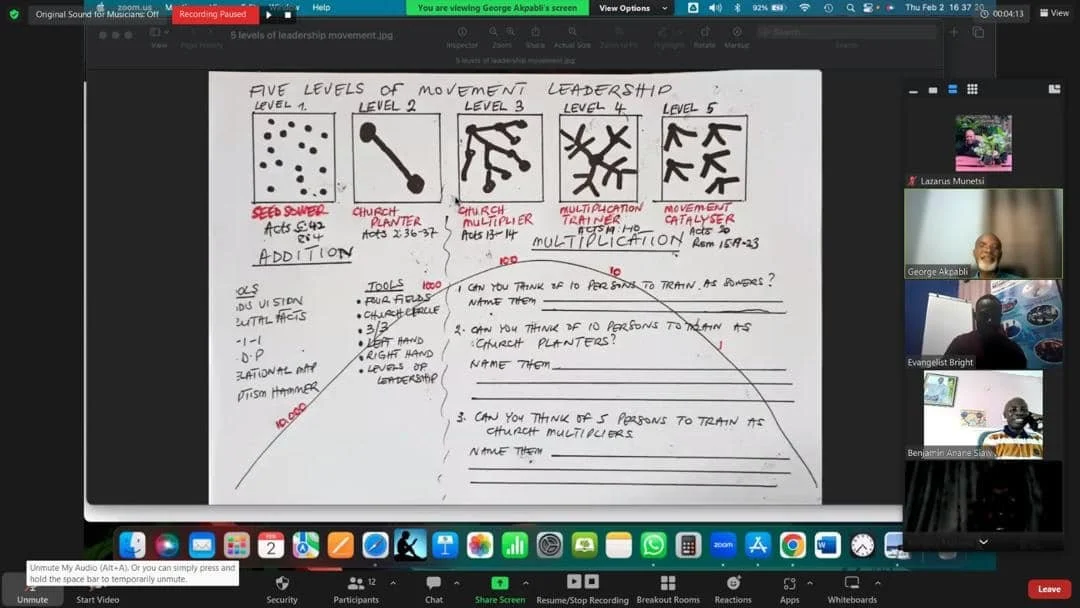 zoom.us
Help
Original Sound for Musicians: Off
Recording Paused
You are viewing George Akpabli's screen
View Options
92%
Thu Feb 2 16 37 20
00:04:13
View
5 levels of leadership movement.jpg
View
Inspector
Zoom
Share
Actual Size
Zoom to Fit
Highlight
Rotate
Markup
Search
Search
5 levels of leadership movement.jpg
FIVE LEVELS OF MOVEMENT LEADERSHIP
LEVEL 1.
LEVEL 2
LEVEL 3
LEVEL 4
LEVEL 5
SEED SOWER
Acts 5:42
8:4
CHURCH
PLANTER
Acts 2:36-37
CHURCH
MULTIPLIER
Acts 13-14
MULTIPLICATION
TRAINER
ACTS 19:1-10
MOVEMENT
CATALYSER
Acts 20
Rom 15:19-23
ADDITION
MULTIPLICATION
OLS
VISION
-1-1
MAP
HAMMER
10,000
TOOLS
• FOUR FIELDS
• CHURCH CIRCLE
• 3/3
• LEFT HAND
• RIGHT HAND
• LEVELS OF
LEADERSHIP
1000
100
10
1
1 CAN YOU THINK OF 10 PERSONS TO TRAIN AS SOWERS?
NAME THEM
2. CAN YOU THINK OF 10 PERSONS TO TRAIN AS
CHURCH PLANTERS?
NAME THEM
3. CAN YOU THINK OF 5 PERSONS TO TRAIN AS
CHURCH MULTIPLIERS
NAME THEM
Lazarus Munetsi
George Akpabli
Evangelist Bright
Benjamin Anane Siaw
FEB
2
zoom
W
Unmute My Audio (Alt+A). Or you can simply press and
hold the space bar to temporarily unmute.
Unmute
Start Video
Security
12
Participants
Chat
Share Screen
Resume/Stop Recording
Breakout Rooms
Reactions
Apps
Whiteboards
Leave